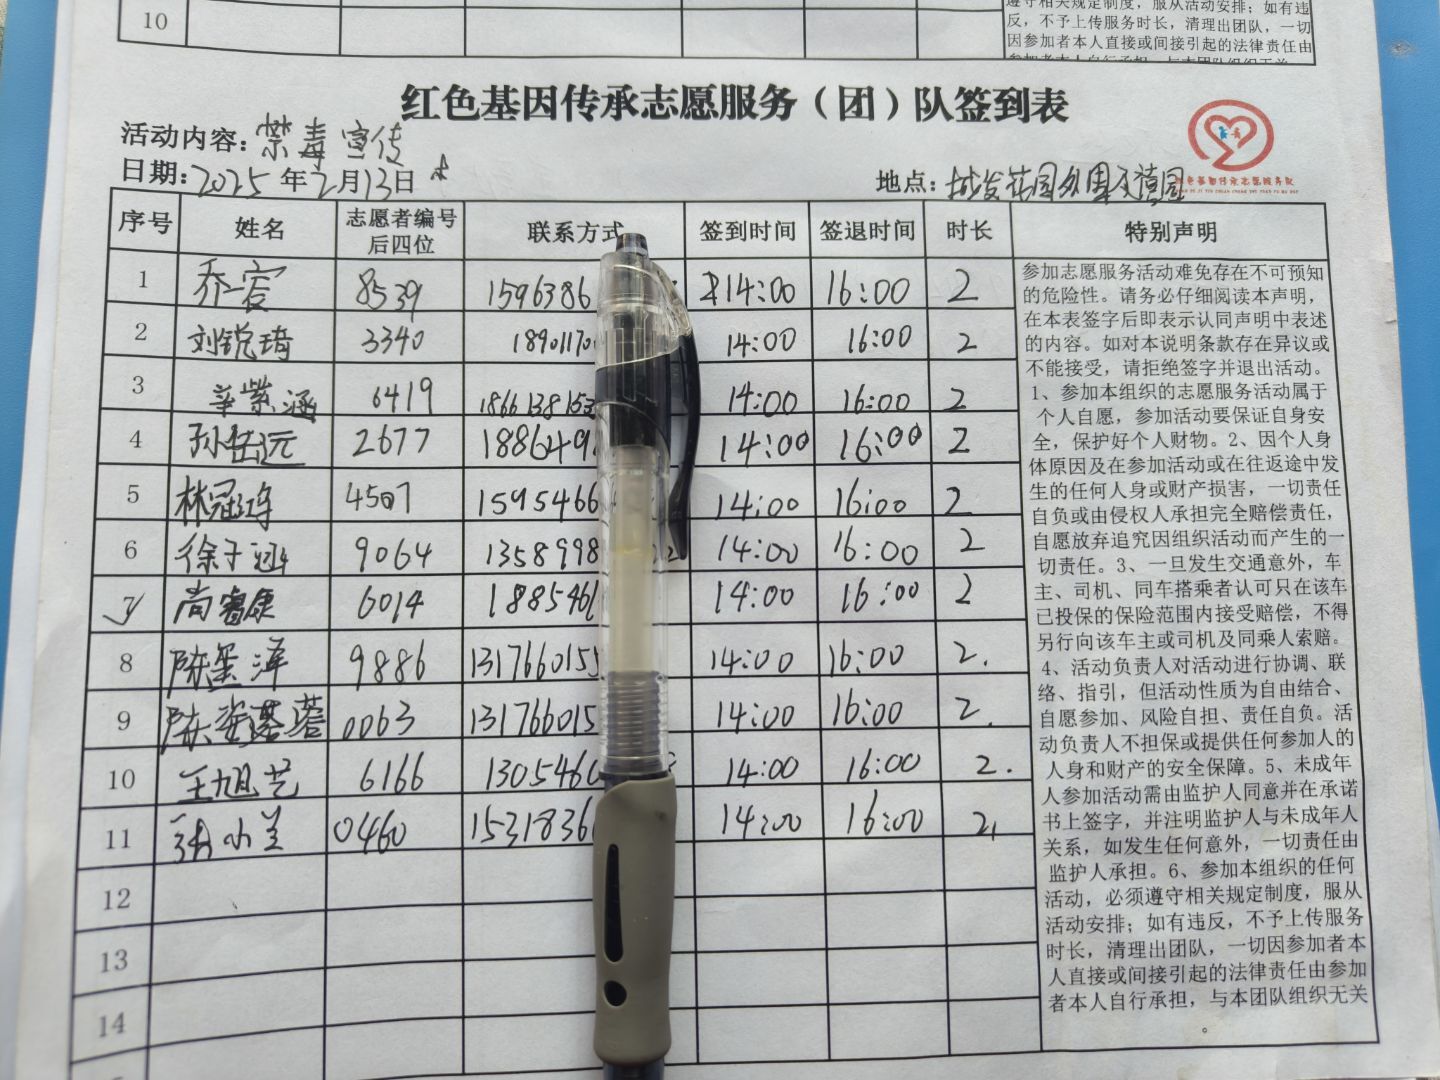 10
遵守相关规定制度，服从活动安排；如有违
反，不予上传服务时长，清理出团队，一切
因参加者本人直接或间接引起的法律责任由
参加者本人自行承担，与本团队组织无关
红色基因传承志愿服务（团）队签到表
活动内容：禁毒宣传
日期：2025年2月13日
地点：城发花园外围
红色基因传承志愿服务队
序号 姓名 志愿者编号后四位 联系方式 签到时间 签退时间 时长 特别声明
1 乔容 8539 1596386 14:00 16:00 2
2 刘锐琦 3340 18901170 14:00 16:00 2
3 辛紫涵 6419 1866138153 14:00 16:00 2
4 孙岳远 2677 1886449 14:00 16:00 2
5 林冠 4507 1595466 14:00 16:00 2
6 徐子涵 9064 1358998 14:00 16:00 2
7 尚睿康 6014 1885461 14:00 16:00 2
8 陈 泽 9886 131766015 14:00 16:00 2.
9 陈 蓉 0063 131766015 14:00 16:00 2.
10 王旭艺 6166 1305460 14:00 16:00 2.
11 张小兰 0460 1531836 14:00 16:00 2
12
13
14
参加志愿服务活动难免存在不可预知
的危险性。请务必仔细阅读本声明，
在本表签字后即表示认同声明中表述
的内容。如对本说明条款存在异议或
不能接受，请拒绝签字并退出活动。
1、参加本组织的志愿服务活动属于
个人自愿，参加活动要保证自身安
全，保护好个人财物。2、因个人身
体原因及在参加活动或在往返途中发
生的任何人身或财产损害，一切责任
自负或由侵权人承担完全赔偿责任，
自愿放弃追究因组织活动而产生的一
切责任。3、一旦发生交通意外，车
主、司机、同车搭乘者认可只在该车
已投保的保险范围内接受赔偿，不得
另行向该车主或司机及同乘人索赔。
4、活动负责人对活动进行协调、联
络、指引，但活动性质为自由结合、
自愿参加、风险自担、责任自负。活
动负责人不担保或提供任何参加人的
人身和财产的安全保障。5、未成年
人参加活动需由监护人同意并在承诺
书上签字，并注明监护人与未成年人
关系，如发生任何意外，一切责任由
监护人承担。6、参加本组织的任何
活动，必须遵守相关规定制度，服从
活动安排；如有违反，不予上传服务
时长，清理出团队，一切因参加者本
人直接或间接引起的法律责任由参加
者本人自行承担，与本团队组织无关
。